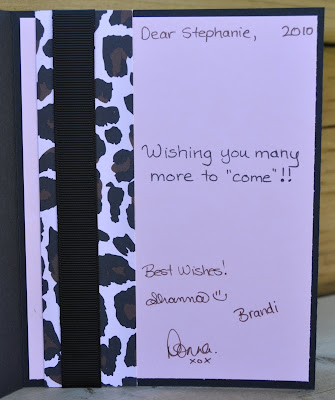 Dear Stephanie, 2010
Wishing you many
more to "come"!!
Best Wishes!
Shanna
Brandi
Donna
xox